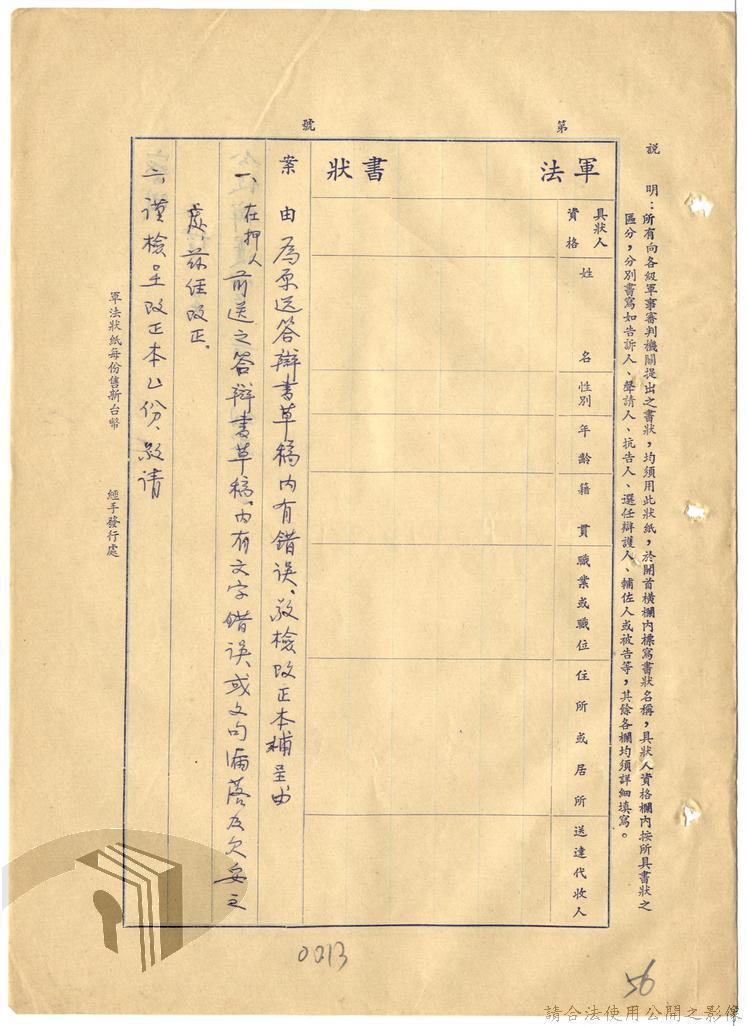 說　明：所有向各級軍事審判機關提出之書狀，均須用此狀紙，於開首橫欄內標寫書狀名稱，具狀人資格欄內按所具書狀之
區分，分別書寫如告訴人、聲請人、抗告人、選任辯護人、輔佐人或被告等，其餘各欄均須詳細填寫。
第　號
軍法　書狀
具狀人
資格
姓　名
性別
年齡
籍貫
職業或職位
住所或居所
送達代收人
案　由　為原送答辯書草稿內有錯誤、敬檢改正本補呈由
一、在押人前送之答辯書草稿、內有文字錯誤或文句漏落及欠妥之
處、茲經改正。
二、謹檢呈改正本乙份、敬請
軍法狀紙每份售新台幣　經手發行處
0013
56
請合法使用公開之影像